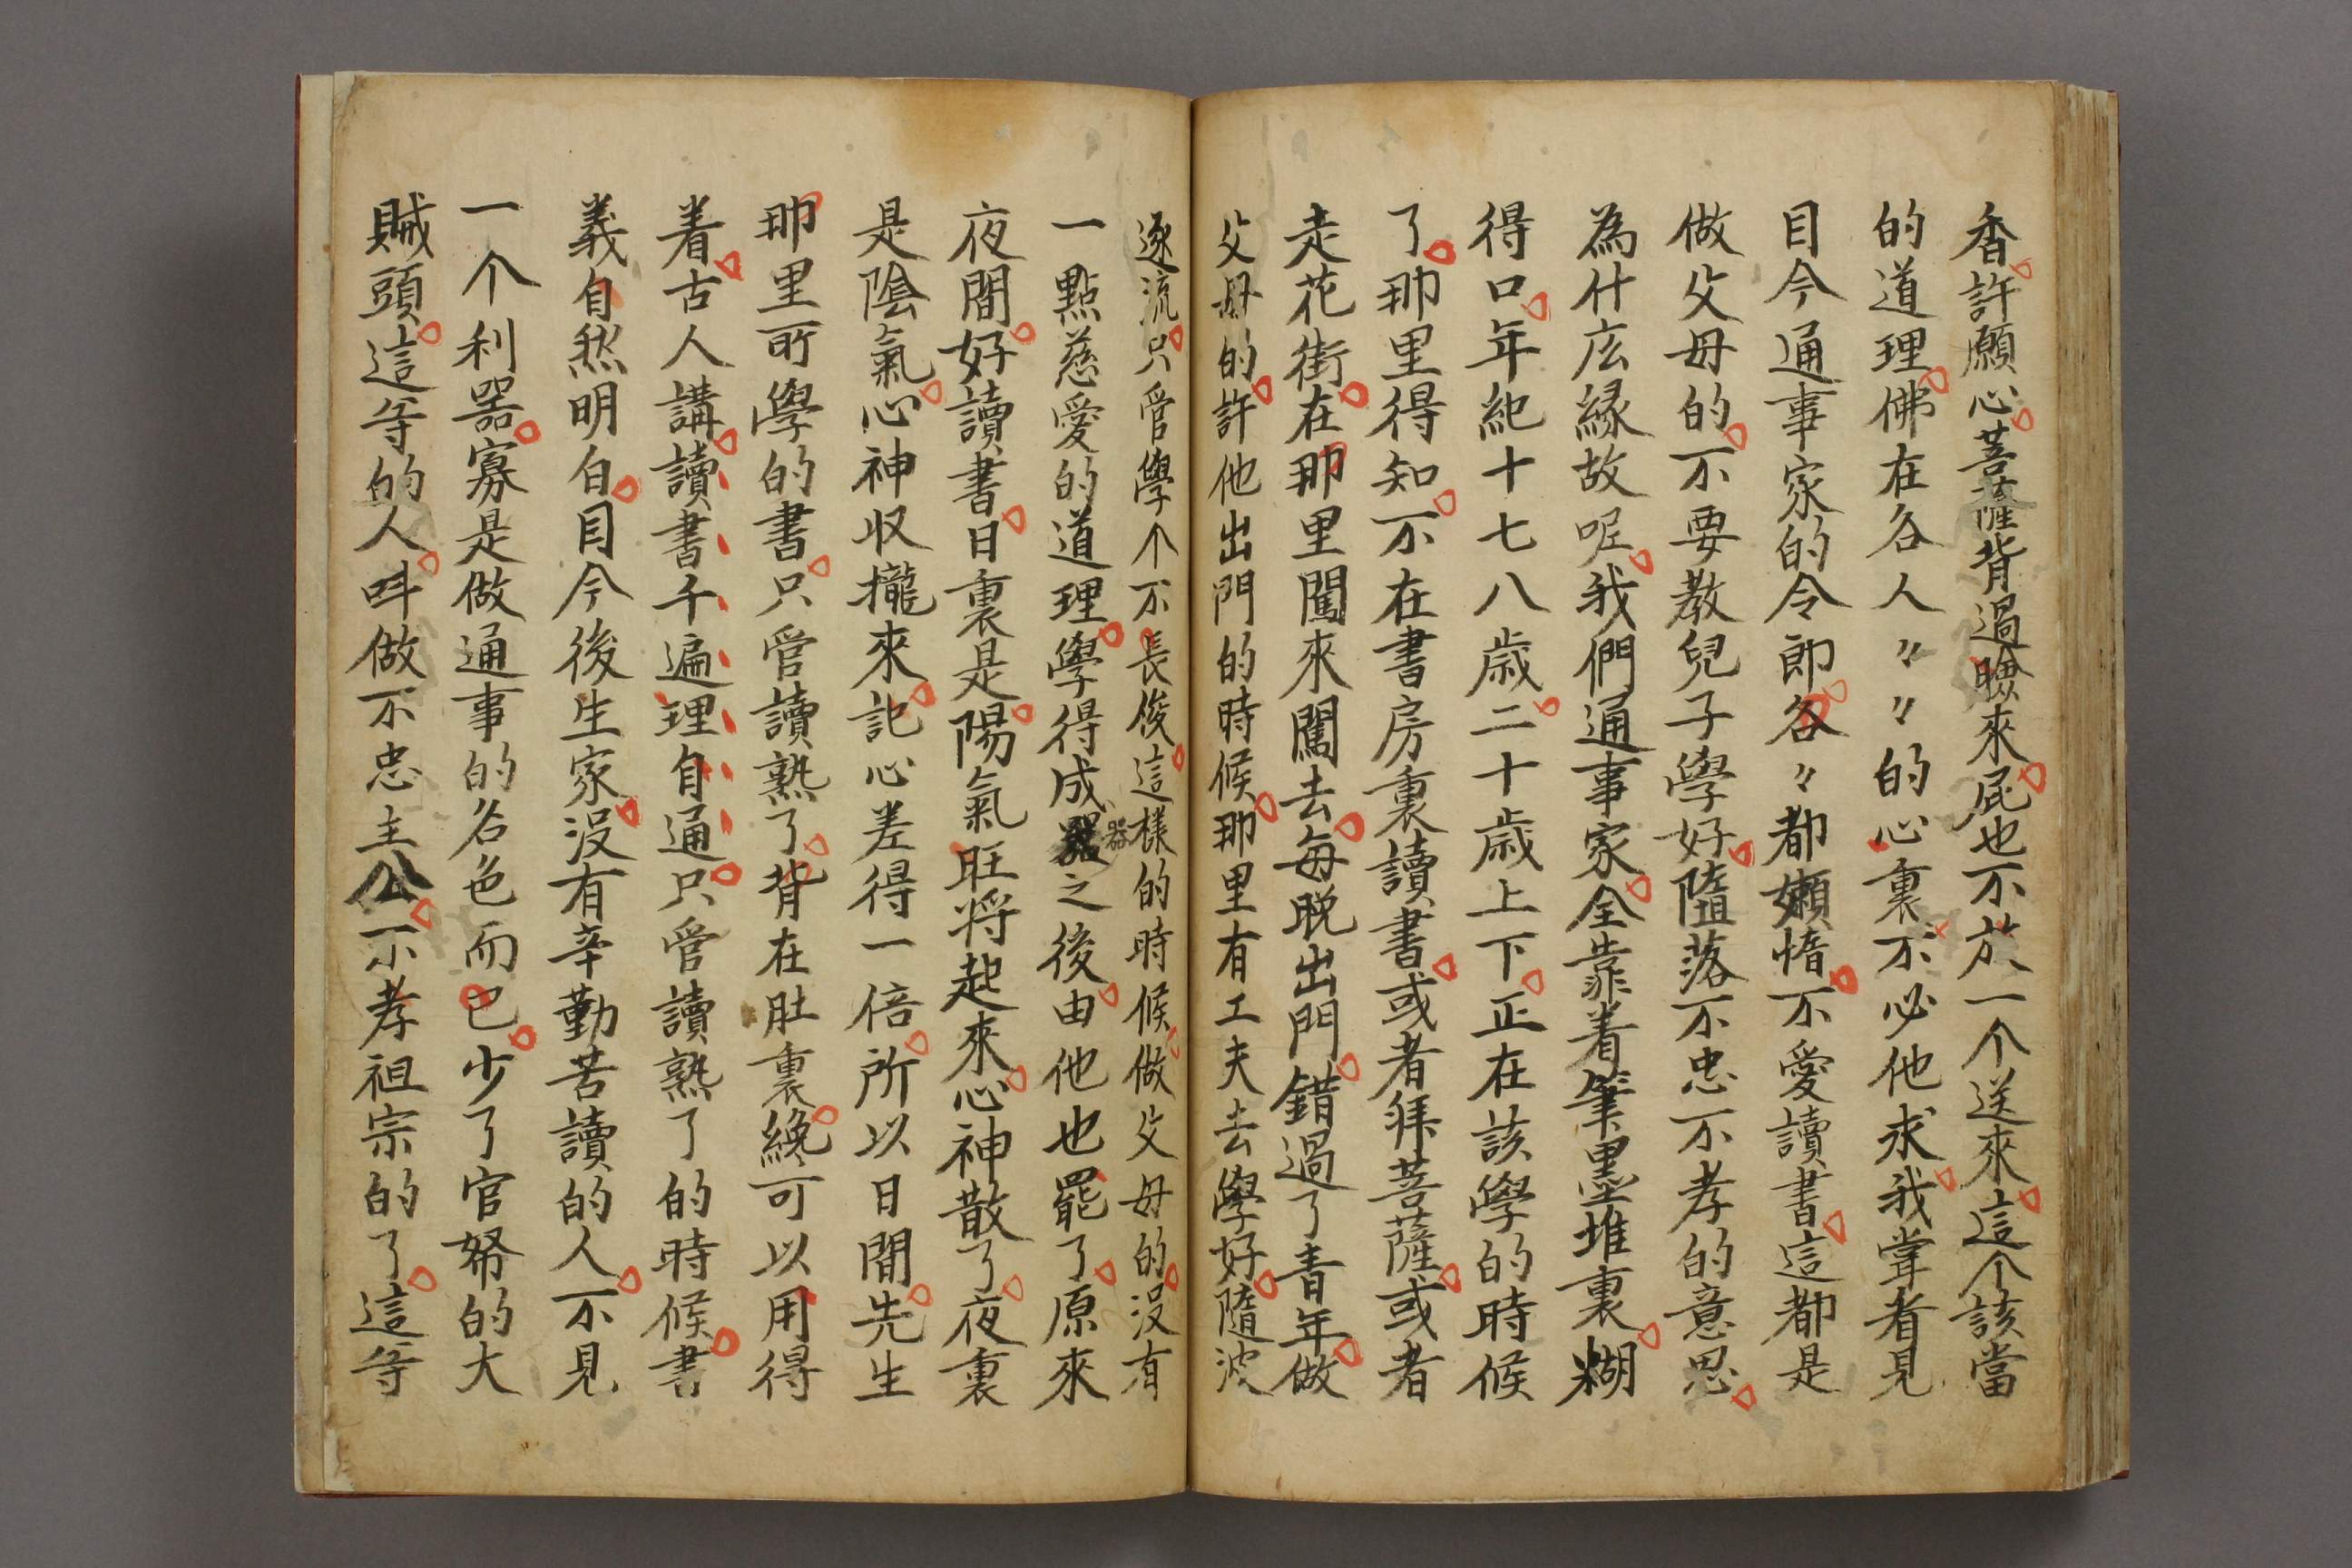 香許願心菩薩背過臉來屁也不放一个送來這个該當
的道理佛在各人〃〃的心裏不必他求我常看見
目今通事家的令郎各〃都嬾惰不愛讀書這都是
做父母的不要教兒子學好墮落不忠不孝的意思
為什庅緣故呢我們通事家全靠着筆墨堆裏糊
得口年紀十七八歳二十歳上下正在該學的時候
了那里得知不在書房裏讀書或者拜菩薩或者
走花街在那里闖來闖去每晚出門錯過了青年做
父母的許他出門的時候那里有工夫去學好隨波
逐流只管學个不長俊這樣的時候做父母的沒有
一點慈愛的道理學得成器之後由他也罷了原來
夜間好讀書日裏是陽氣旺将起來心神散了夜裏
是陰氣心神収攏來記心差得一倍所以日間先生
那里所學的書只管讀熟了背在肚裏纔可以用得
着古人講讀書千遍理自通只管讀熟了的時候書
義自然明白目今後生家沒有辛勤苦讀的人不見
一个利器寡是做通事的名色而已少了官帑的大
賊頭這等的人呌做不忠主公不孝祖宗的了這等